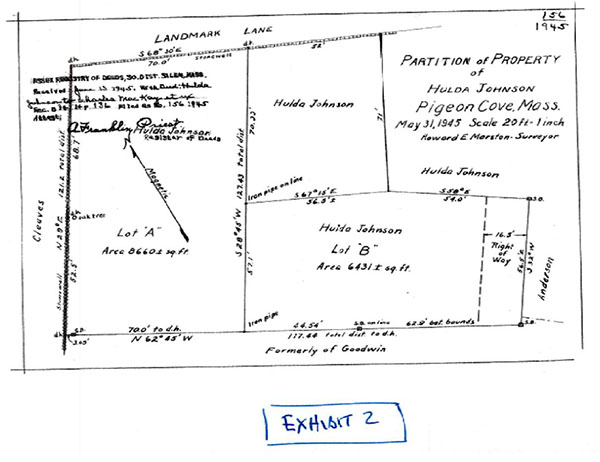 156
1945
LANDMARK LANE
d.h.
S 68° 30' E
70.0'
Stonewall
d.h.
52'
ESSEX REGISTRY OF DEEDS, SO. DIST. SALEM, MASS.
Received June 13 1945. With Deed: Hulda
Johnson to Charles
Rec. B. P. 136 Filed as No. 156 1945
Attest:
A. Franklin Priest
Register of Deeds
Hulda Johnson
PARTITION OF PROPERTY
of
HULDA JOHNSON
Pigeon Cove, Mass.
May 31, 1945 Scale 20 ft - 1 inch
Howard E. Morston - Surveyor
Hulda Johnson
71'
Hulda Johnson
Magnetic
Cleaves
N 29° E
121.2 total dist
68.7'
d.h.
oak tree
52.5'
Stonewall
Lot "A"
Area 8660± sq. ft.
S 28° 45' W
127.43 total dist
70.33'
57.1'
Iron pipe on line
S 67° 15' E
56.5'±
S 58° E
54.0'
S.B.
Hulda Johnson
Lot "B"
Area 6431± sq. ft.
16.5'
Right
of
Way
56.5'±
S 32° W
Anderson
Iron pipe
d.h.
S.B.
3.03'
70.0' to d.h.
N 62° 45' W
44.54'
S.B. on line
62.9' bet. bounds
S.B.
117.44 total dist to d.h.
Formerly of Goodwin
EXHIBIT 2